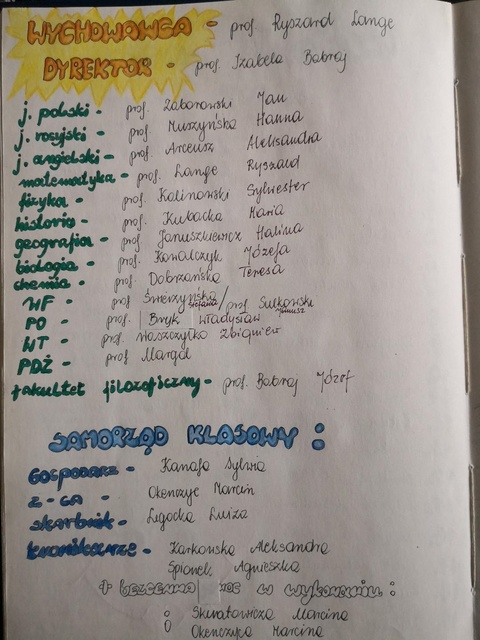 WYCHOWAWCA - prof Ryszard Lange
DYREKTOR - prof. Izabela Babraj
j. polski - prof. Zaborowski Jan
j. rosyjski - prof. Muszyńska Hanna
j. angielski - prof. Arceusz Aleksandra
matematyka - prof. Lange Ryszard
fizyka - prof. Kalinowski Sylwester
historia - prof. Kubacka Maria
geografia - prof Januszkiewicz Halina
biologia - prof. Kowalczyk Józefa
chemia - prof. Dobrzańska Teresa
WF - prof Świerzyńska / prof Sułkowski
PO - prof. Bryk Władysław
WT - prof. Zbigniew
PDŻ - prof Margol
fakultet filozoficzny - prof. Babraj Józef
SAMORZĄD KLASOWY :
GOSPODARZ - Kanafa Sylwia
Z-CA - Marcin
skarbnik - Legocka Luiza
kronikarze - Karkowska Aleksandra
Spionek Agnieszka
bezcenna w wykonaniu :
Marcina
Marcina